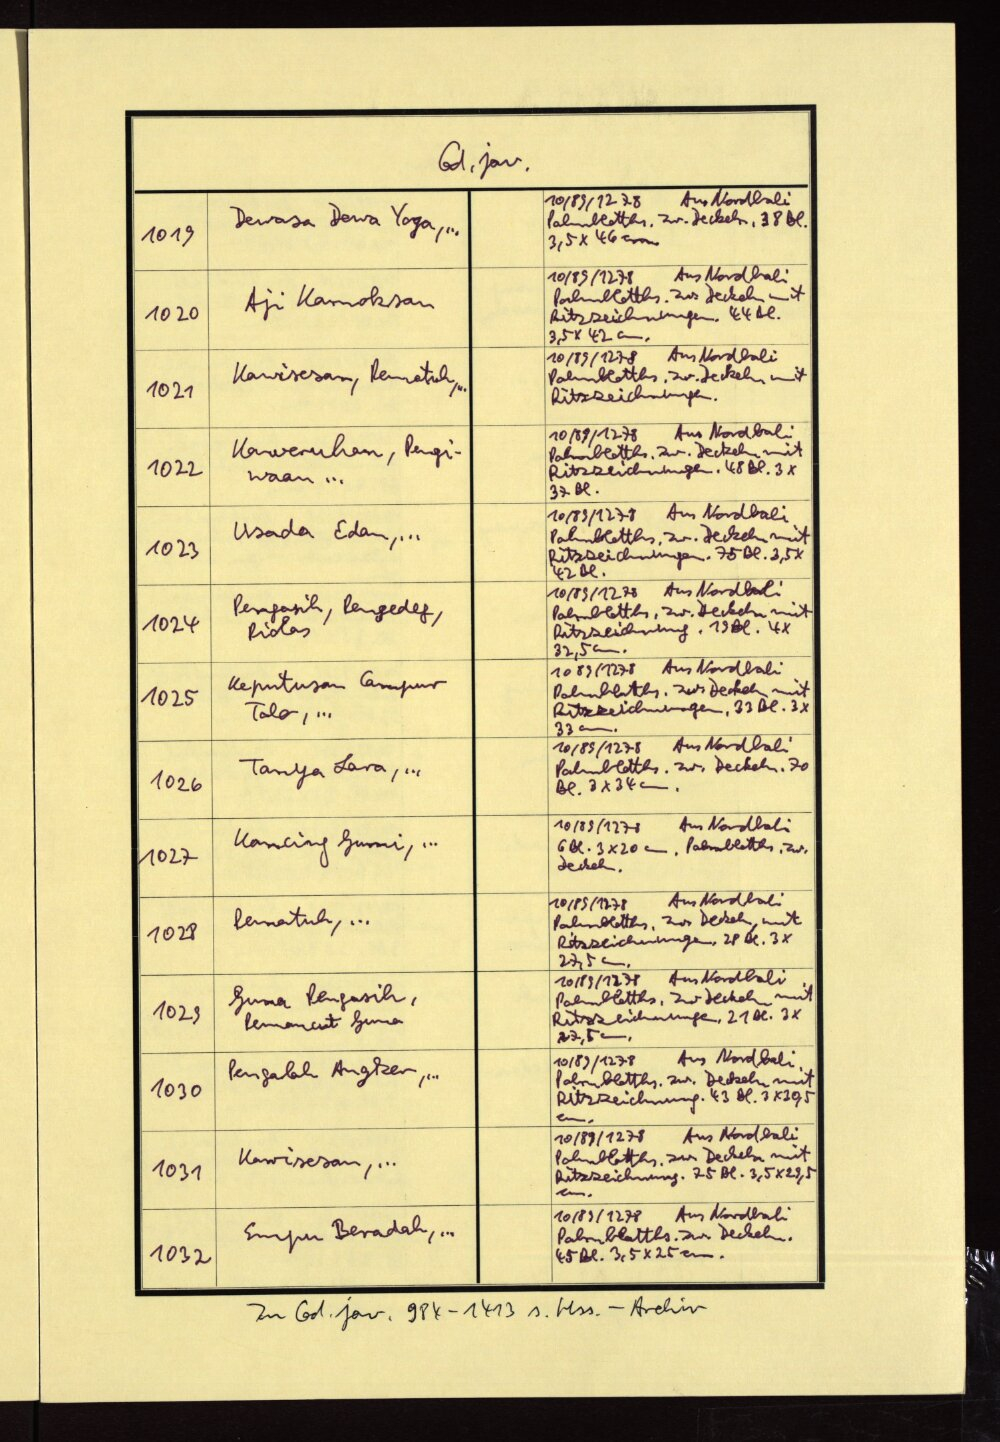 Cod. jav.
1019
Dewasa Dewa Yoga,...
10/89/1278 Aus Nordbali
Palmblatths. zw. Deckeln. 38 Bl.
3,5 x 46 cm
1020
Aji Kamoksan
10/89/1278 Aus Nordbali
Palmblatths. zw. Deckeln mit
Ritzzeichnungen. 44 Bl.
3,5 x 42 cm.
1021
Kawisesan, Pematuh,...
10/89/1278 Aus Nordbali
Palmblatths. zw. Deckeln mit
Ritzzeichnungen.
1022
Kaweruhan, Pengi-
waan ...
10/89/1278 Aus Nordbali
Palmblatths. zw. Deckeln mit
Ritzzeichnungen. 48 Bl. 3 x
37 Bl.
1023
Usada Edan,...
10/89/1278 Aus Nordbali
Palmblatths. zw. Deckeln mit
Ritzzeichnungen. 75 Bl. 3,5 x
42 Bl.
1024
Pengasih, Pengedeg,
10/89/1278 Aus Nordbali
Palmblatths. zw. Deckeln mit
Ritzzeichnung. 19 Bl. 4 x
32,5 cm.
1025
Keputusan Campur
Talo,...
10 89/1278 Aus Nordbali
Palmblatths. zw. Deckeln mit
Ritzzeichnungen, 33 Bl. 3 x
33 cm.
1026
Tanya Lara,...
10/89/1278 Aus Nordbali
Palmblatths. zw. Deckeln. 70
Bl. 3 x 34 cm.
1027
Kancing Gumi, ...
10/89/1278 Aus Nordbali
6 Bl. 3 x 20 cm. Palmblatths. zw.
Deckeln.
1028
Pematuh,...
10/89/1278 Aus Nordbali
Palmblatths. zw. Deckeln mit
Ritzzeichnungen. 28 Bl. 3 x
27,5 cm.
1029
Guna Pengasih,
Pemancut Guna
10/89/1278 Aus Nordbali
Palmblatths. zw. Deckeln mit
Ritzzeichnunge, 21 Bl. 3 x
27,5 cm.
1030
Pengalah Angker,...
10/89/1278 Aus Nordbali,
Palmblatths. zw. Deckeln mit
Ritzzeichnung. 43 Bl. 3 x 30,5
cm.
1031
Kawisesan,...
10/89/1278 Aus Nordbali
Palmblatths. zw. Deckeln mit
Ritzzeichnung. 75 Bl. 3,5 x 29,5
cm.
1032
Empu Beradah,...
10/89/1278 Aus Nordbali
Palmblatths. zw. Deckeln.
45 Bl. 3,5 x 25 cm.
Zu Cod. jav. 984 - 1413 s. Hss. - Archiv